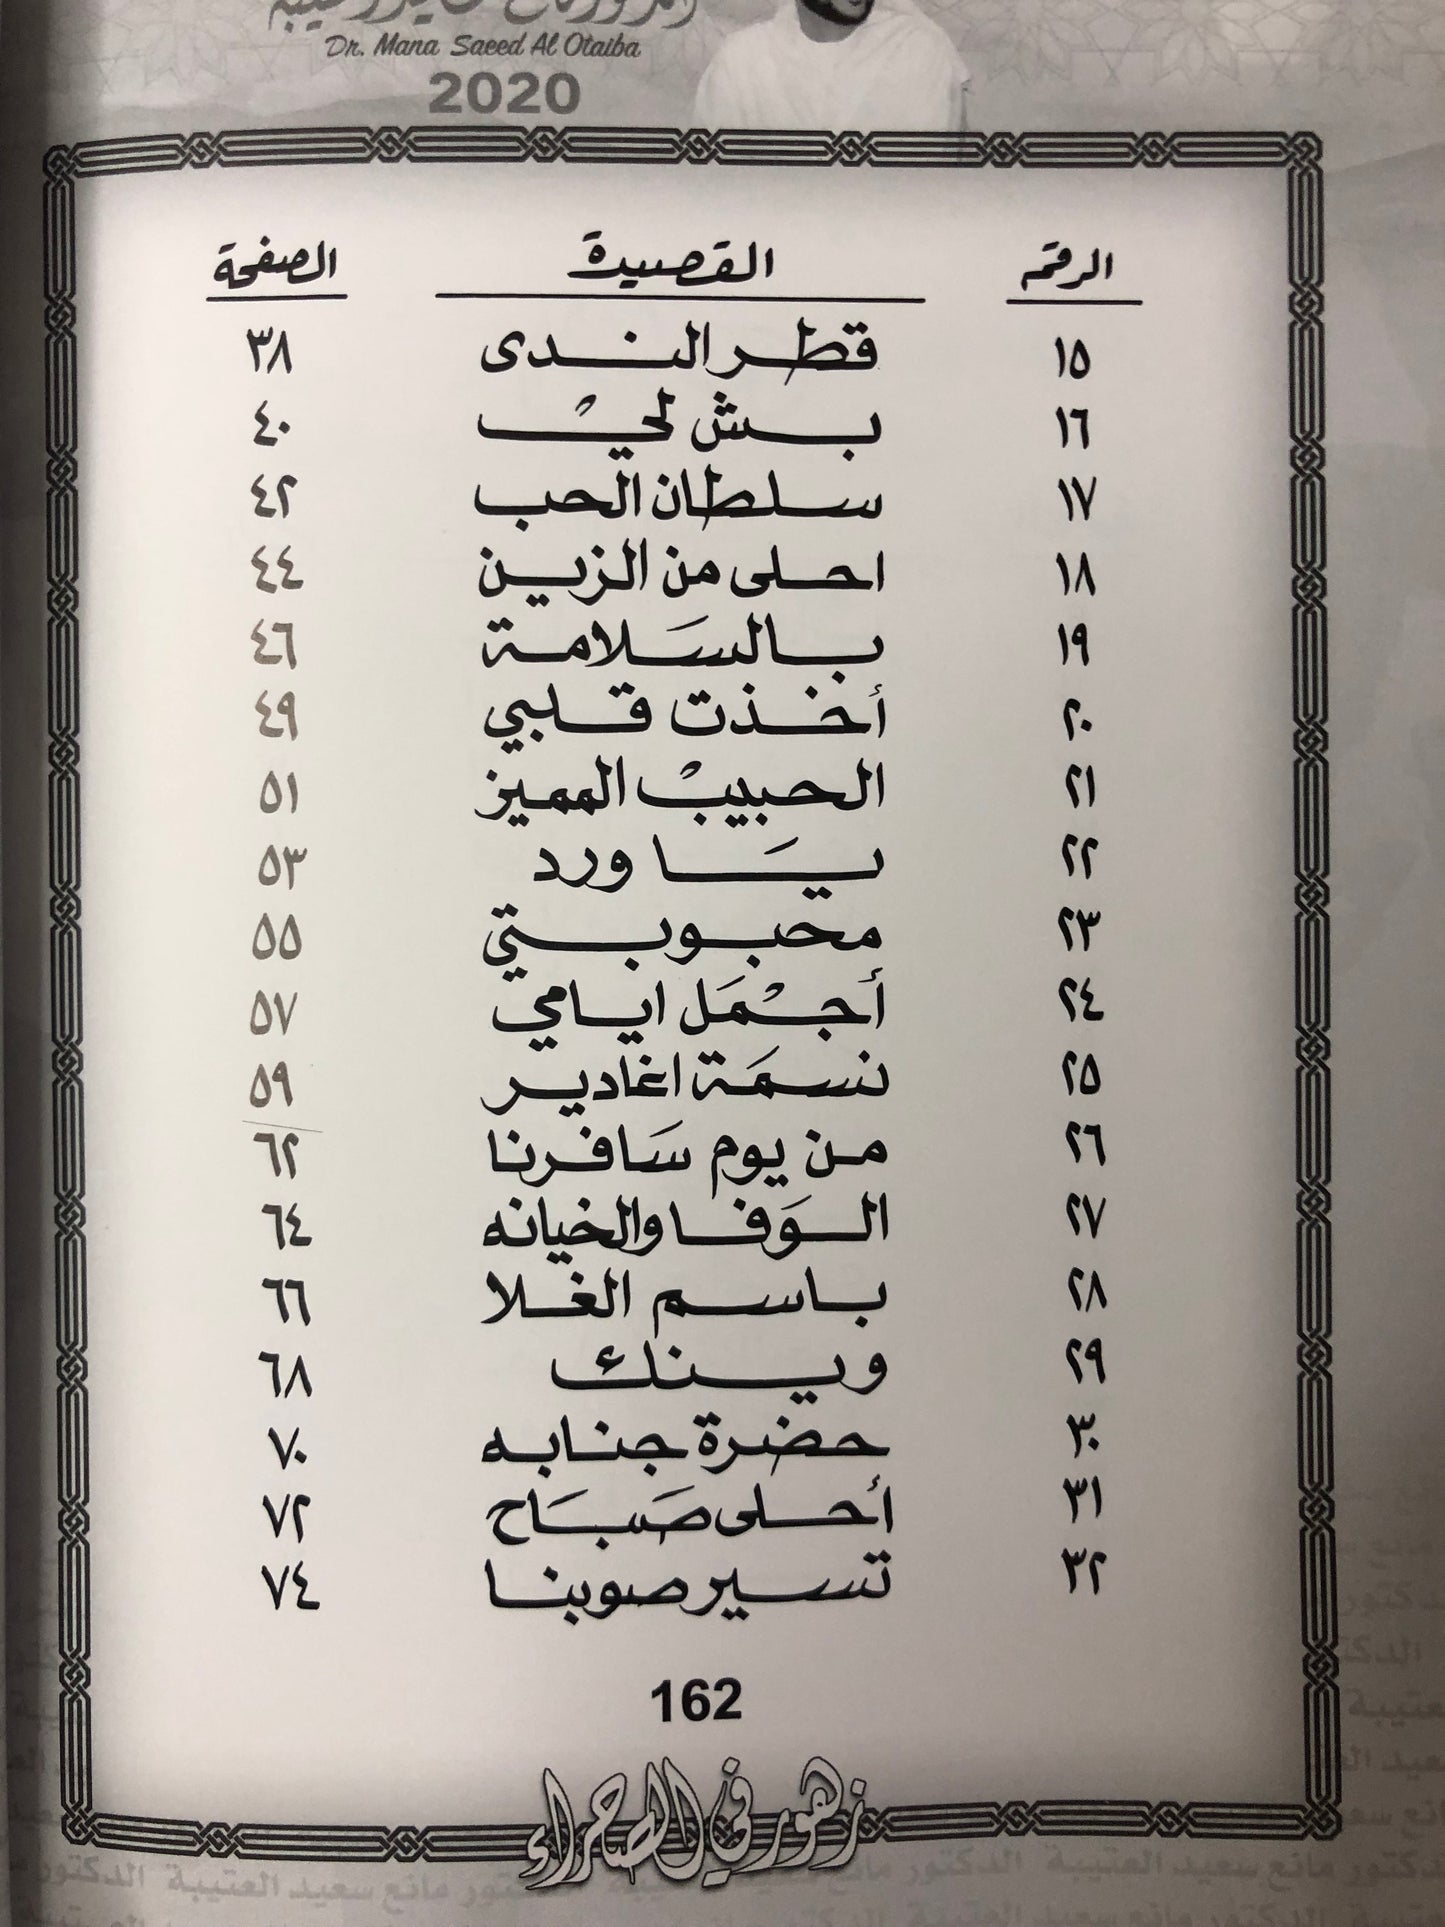 Dr. Mana Saeed Al Otaiba
2020
الرقم القصيدة الصفحة
١٥ قطر الندى ٣٨
١٦ بش لحيْ ٤٠
١٧ سلطان الحب ٤٢
١٨ احلى من الزين ٤٤
١٩ بالسَلامة ٤٦
٢٠ أخذت قلبي ٤٩
٢١ الحبيبْ المميز ٥١
٢٢ يَا ورد ٥٣
٢٣ محبوبتي ٥٥
٢٤ أجْمَل ايامي ٥٧
٢٥ نسمَة اغادير ٥٩
٢٦ من يوم سَافرنا ٦٢
٢٧ الوَفا والخيانه ٦٤
٢٨ باسم الغلا ٦٦
٢٩ وينك ٦٨
٣٠ حضرة جنابه ٧٠
٣١ أحلى صَبَاح ٧٢
٣٢ تسير صوبنا ٧٤
162
زهور في الصحراء